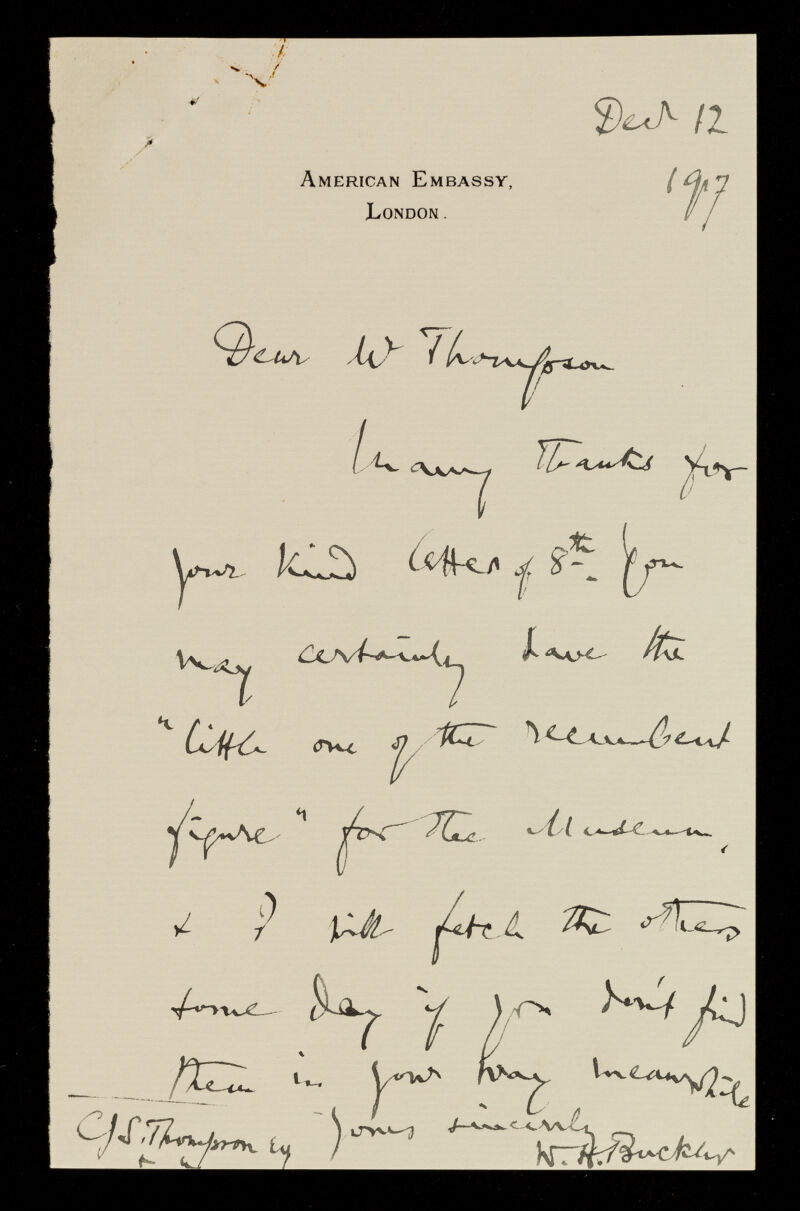 Decr 12
1917
AMERICAN EMBASSY,
LONDON.
Dear Mr Thompson
Many thanks for
your kind letter of 8th. You
may certainly have the
"little one of the recumbent
figure" for the Museum,
& I will fetch the others
some day if you don't find
them in your way meanwhile
Yours sincerely
W. H. Buckler
C.J.S. Thompson Esq